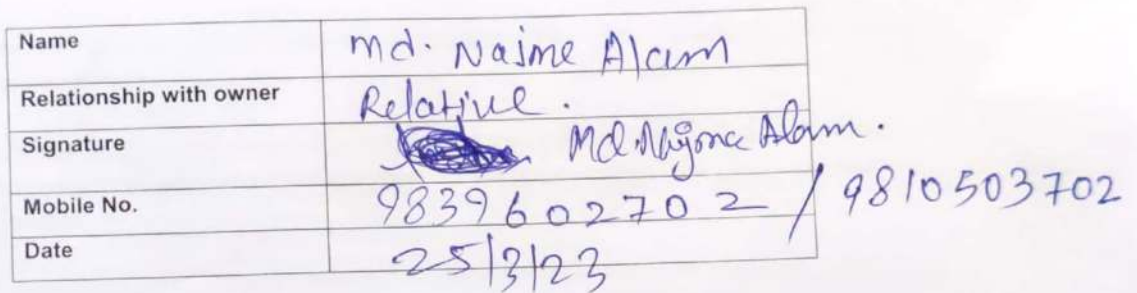 Name Md. Najme Alam
Relationship with owner Relative.
Signature Md. Najme Alam.
Mobile No. 9839602702 / 9810503702
Date 25/3/23